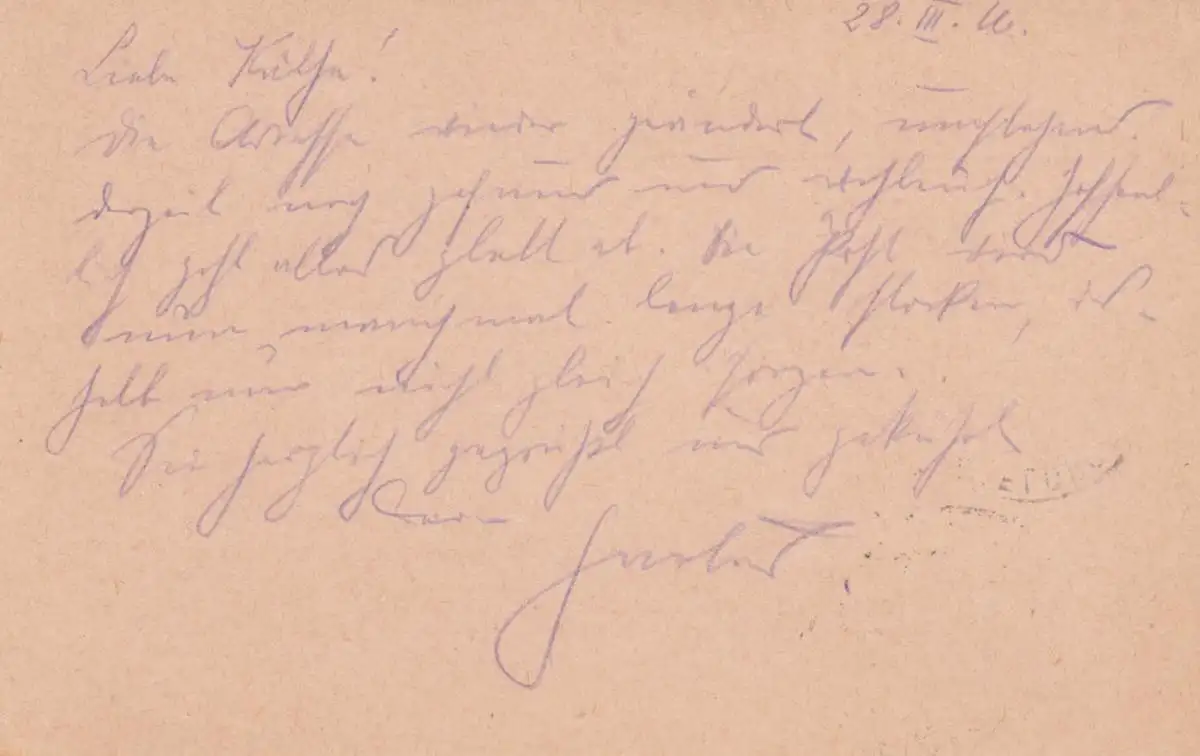 28. III. 16.
Liebe Käthe!
Die Adresse wieder geändert, umstehend.
Derzeit noch gesund und wohlauf. Hoffent-
lich geht alles glatt ab. Die Post wird
nun manchmal lange stocken, des-
halb nur nicht gleich sorgen.
Sei herzlich gegrüßt und geküßt
Dein